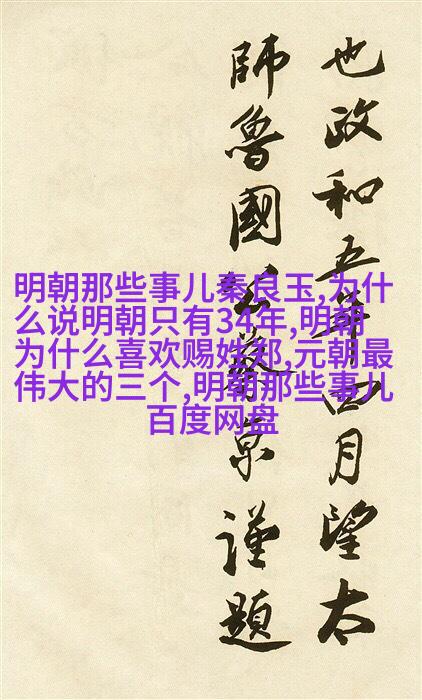 也政和五年四月望太
師魯國公蔡京謹題
明朝那些事儿秦良玉,为什
么说明朝只有34年,明朝
为什么喜欢赐姓郑,元朝最
伟大的三个,明朝那些事儿
百度网盘